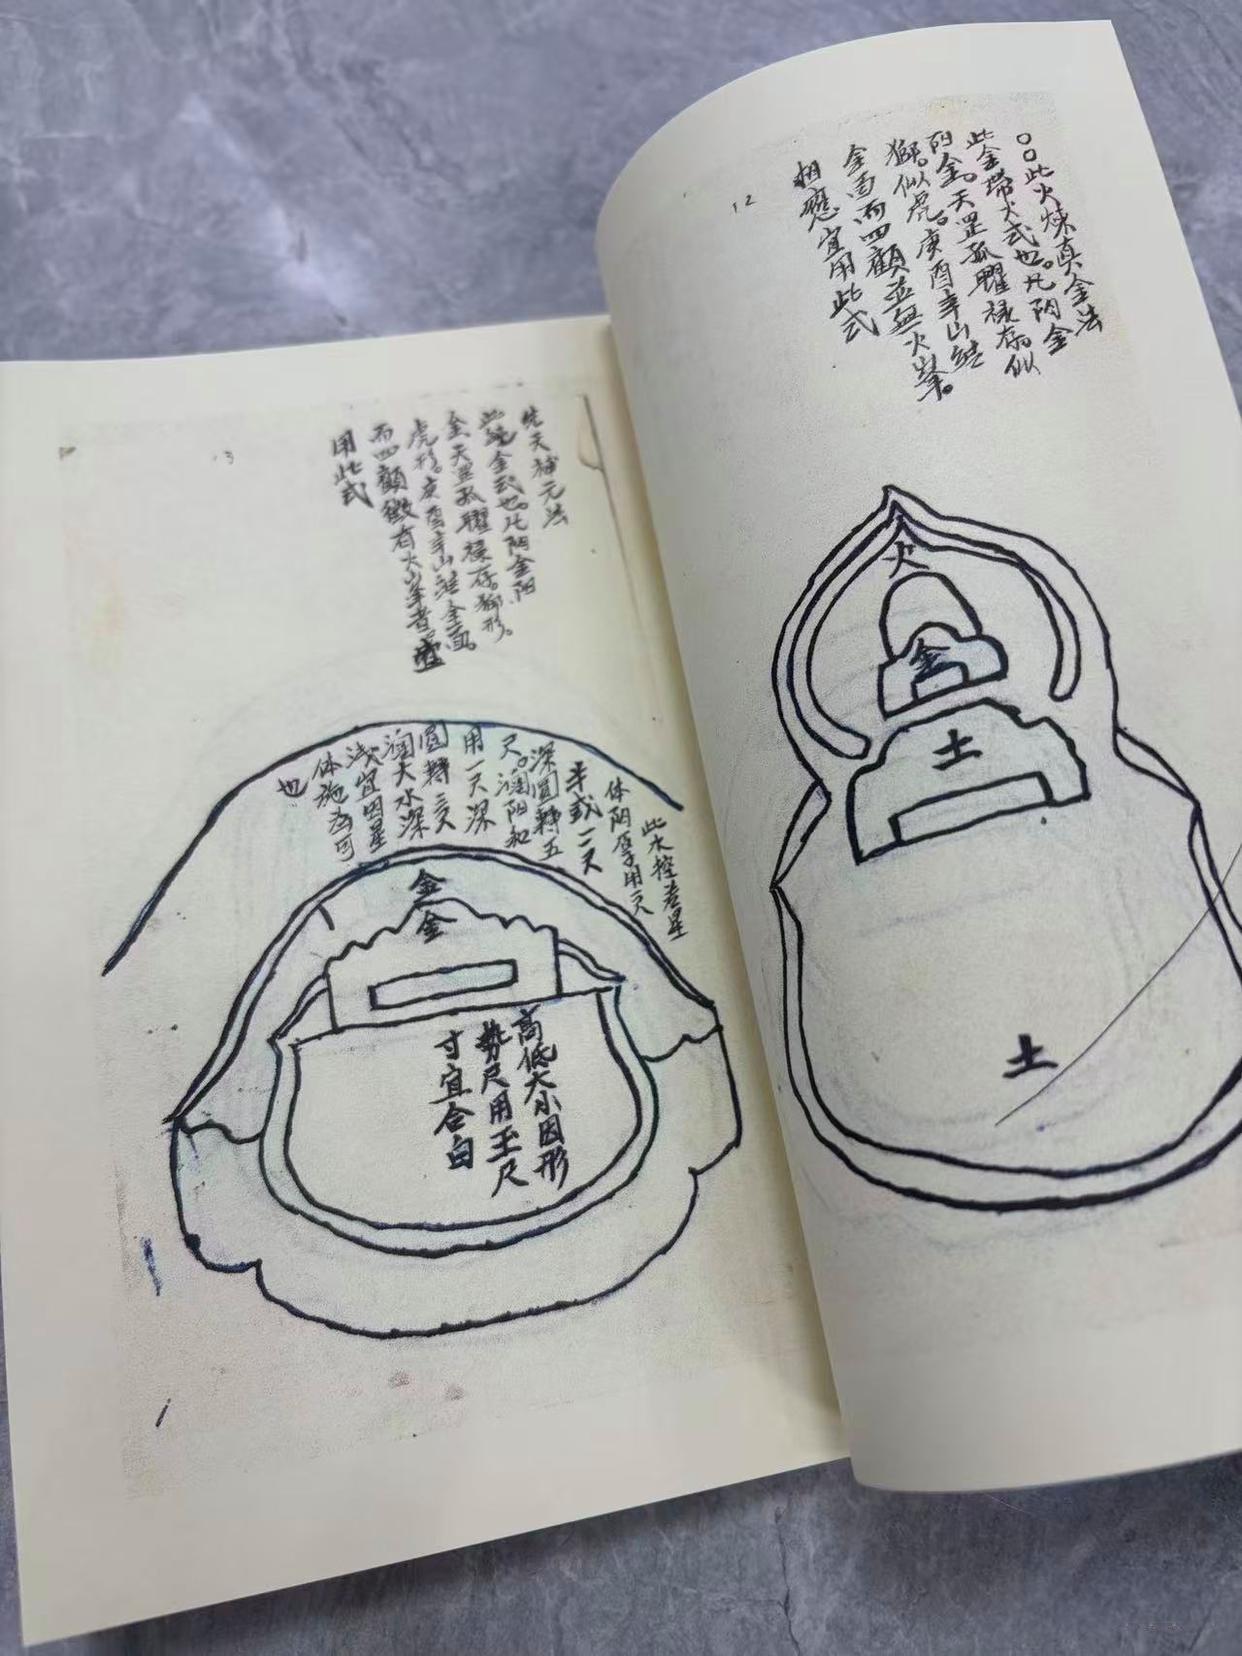 〇〇此火煉真金法
此金帶火式也。凡阴金
阳金。天罡孤曜禄存。似
獅。似虎。庚酉辛山結
金面而四顧並無火峯。
相應宜用此式
12
火
金
土
土
先天補元法
此純金式也。凡阴金阳
金天罡孤曜禄存。獅形。
虎形。庚酉辛山結金面。
而四顧微有火山峯者
用此式
13
此水控若星
体阴厚用一尺
半或一尺
深圓轉五
尺。濶阳和
用一尺深
圓轉三尺
濶大水深
浅宜因星
体施為可
也
金
金
高低大小因形
勢尺用玉尺
寸宜合白